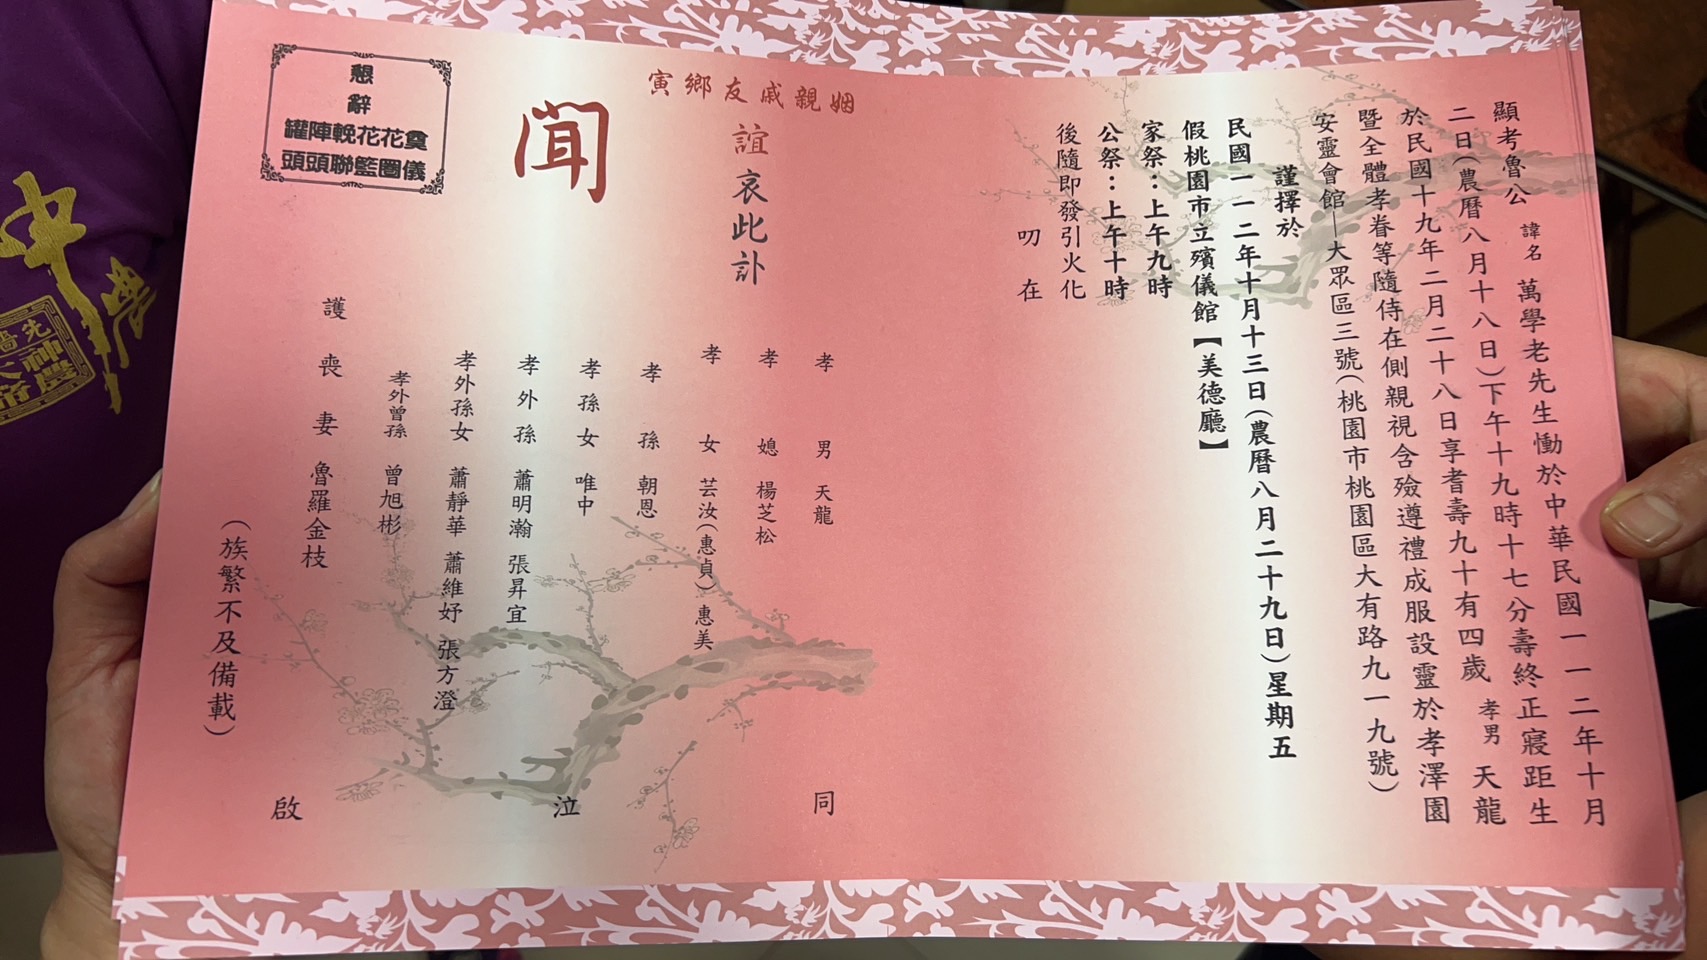 顯考魯公 諱名 萬學老先生慟於中華民國一一二年十月
二日(農曆八月十八日)下午十九時十七分壽終正寢距生
於民國十九年二月二十八日享耆壽九十有四歲 孝男 天龍
暨全體孝眷等隨侍在側親視含殮遵禮成服設靈於孝澤園
安靈會館—大眾區三號(桃園市桃園區大有路九一九號)
謹擇於
民國一一二年十月十三日(農曆八月二十九日)星期五
假桃園市立殯儀館【美德廳】
家祭：上午九時
公祭：上午十時
後隨即發引火化
叨在
姻親戚友鄉寅
誼哀此訃
聞
孝男 天龍
孝媳 楊芝松
孝女 芸汝(惠貞) 惠美
孝孫 朝恩
孝孫女 唯中
孝外孫 蕭明瀚 張昇宜
孝外孫女 蕭靜華 蕭維妤 張方澄
孝外曾孫 曾旭彬
護喪妻 魯羅金枝
(族繁不及備載)
同泣啟
懇
辭
奠儀
花圈
花籃
輓聯
陣頭
罐頭
中